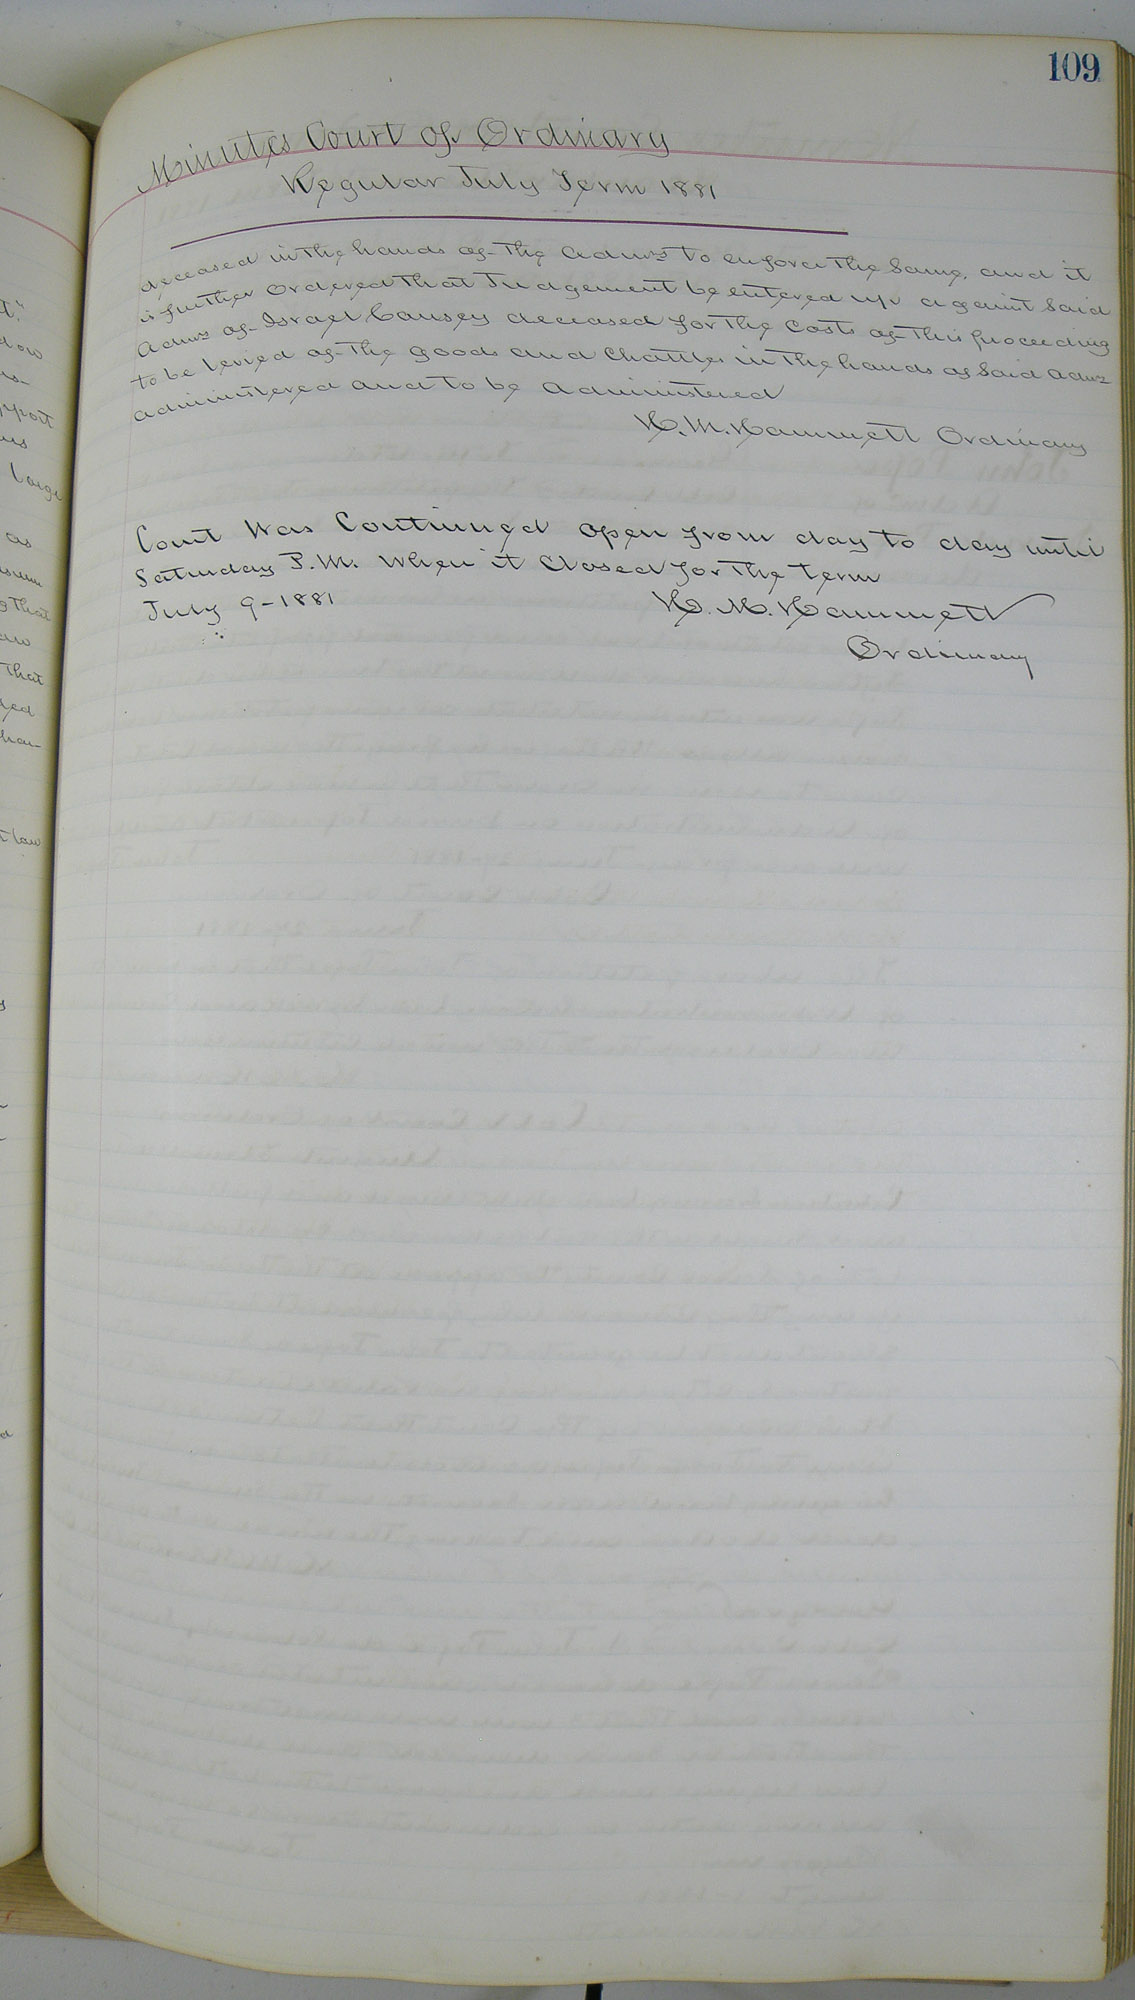 109
Minutes Court of Ordinary
Regular July Term 1881
deceased in the hands of the Admrs to enforce the Same, and it
is further ordered that Judgement be entered up against Said
Admrs of Israel Causey deceased for the Costs of this proceeding
to be levied of the goods and Chattles in the hands of Said Admrs
administered and to be Administered
H. M. Hammett Ordinary
Court Was Continued open from day to day until
Saturday P.M. When it Closed for the term
July 9-1881
H. M. Hammett
Ordinary